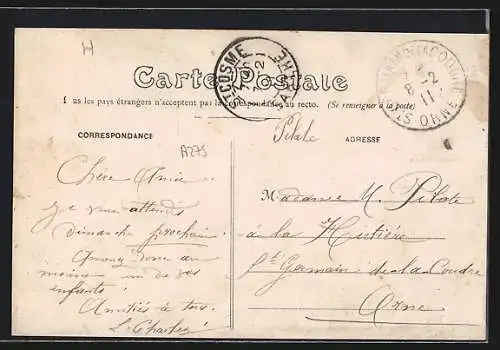 H
ST COSME
Carte Postale
Tous les pays étrangers n'acceptent pas la correspondance au recto. (Se renseigner à la poste)
8 -2
11
ORNE
Pilate
CORRESPONDANCE
ADRESSE
A275
Chère Amie
Je vous attends
dimanche prochain.
Amenez donc au
moins un de vos
enfants!
Amitiés à tous.
L. Charlez!
Madame M. Pilate
à la Hutière
St Germain de la Coudre
Orne